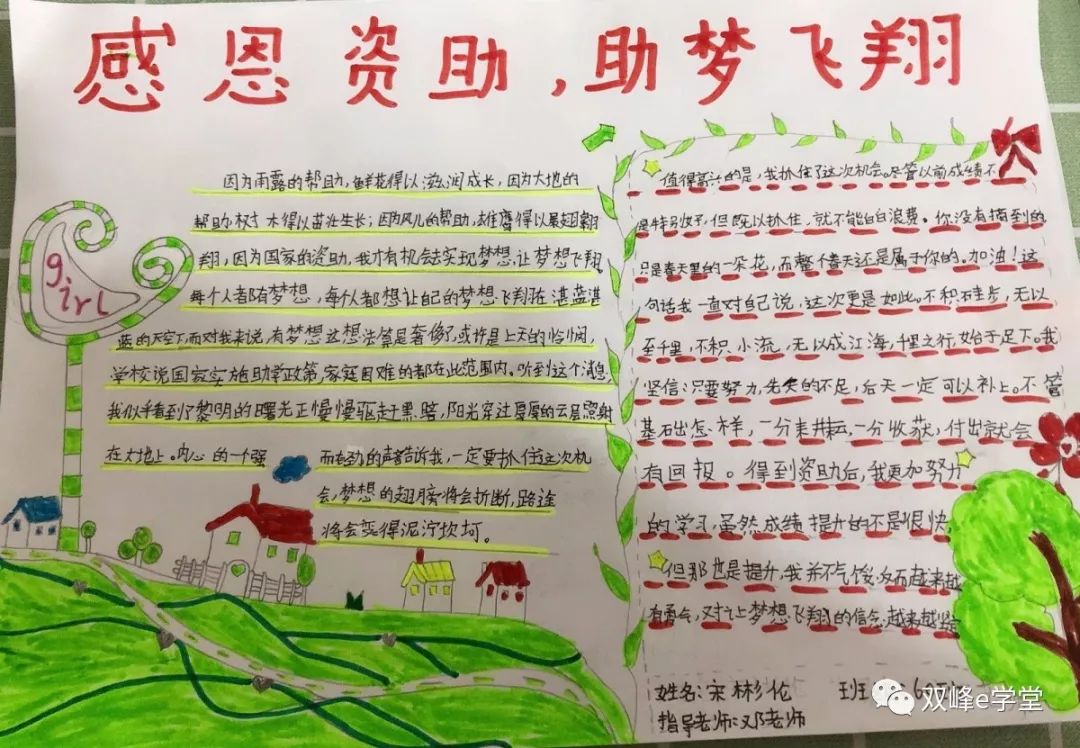 感恩资助，助梦飞翔
girl
因为雨露的帮助，鲜花得以滋润成长，因为大地的
帮助，树木得以茁壮生长；因为风儿的帮助，雄鹰得以展翅翱
翔，因为国家的资助，我才有机会去实现梦想，让梦想飞翔。
每个人都有梦想，每个人都想让自己的梦想飞翔在湛蓝湛
蓝的天空下，而对我来说，有梦想这想法算是奢侈了，或许是上天的怜悯，
学校说国家实施助学政策，家庭困难的都在此范围内。听到这个消息，
我似乎看到了黎明的曙光正慢慢驱赶黑暗，阳光穿过厚厚的云层照射
在大地上。内心的一个强
而有劲的声音告诉我，一定要抓住这次机
会，梦想的翅膀将会折断，路途
将会变得泥泞坎坷。
值得高兴的是，我抓住了这次机会。尽管以前成绩不
是特别好，但既以抓住，就不能白白浪费。你没有摘到的
只是春天里的一朵花，而整个春天还是属于你的。加油！这
句话我一直对自己说，这次更是如此。不积硅步，无以
至千里，不积小流，无以成江海，千里之行，始于足下。我
坚信：只要努力，先失的不足，后天一定可以补上。不管
基石出怎样，一分耕耘，一分收获，付出就会
有回报。得到资助后，我更加努力
的学习，虽然成绩提升的不是很快，
但那也是提升，我并不气馁，反而越来越
有勇气，对让梦想飞翔的信念越来越坚
姓名：宋彬伦 班
指导老师：邓老师
双峰e学堂